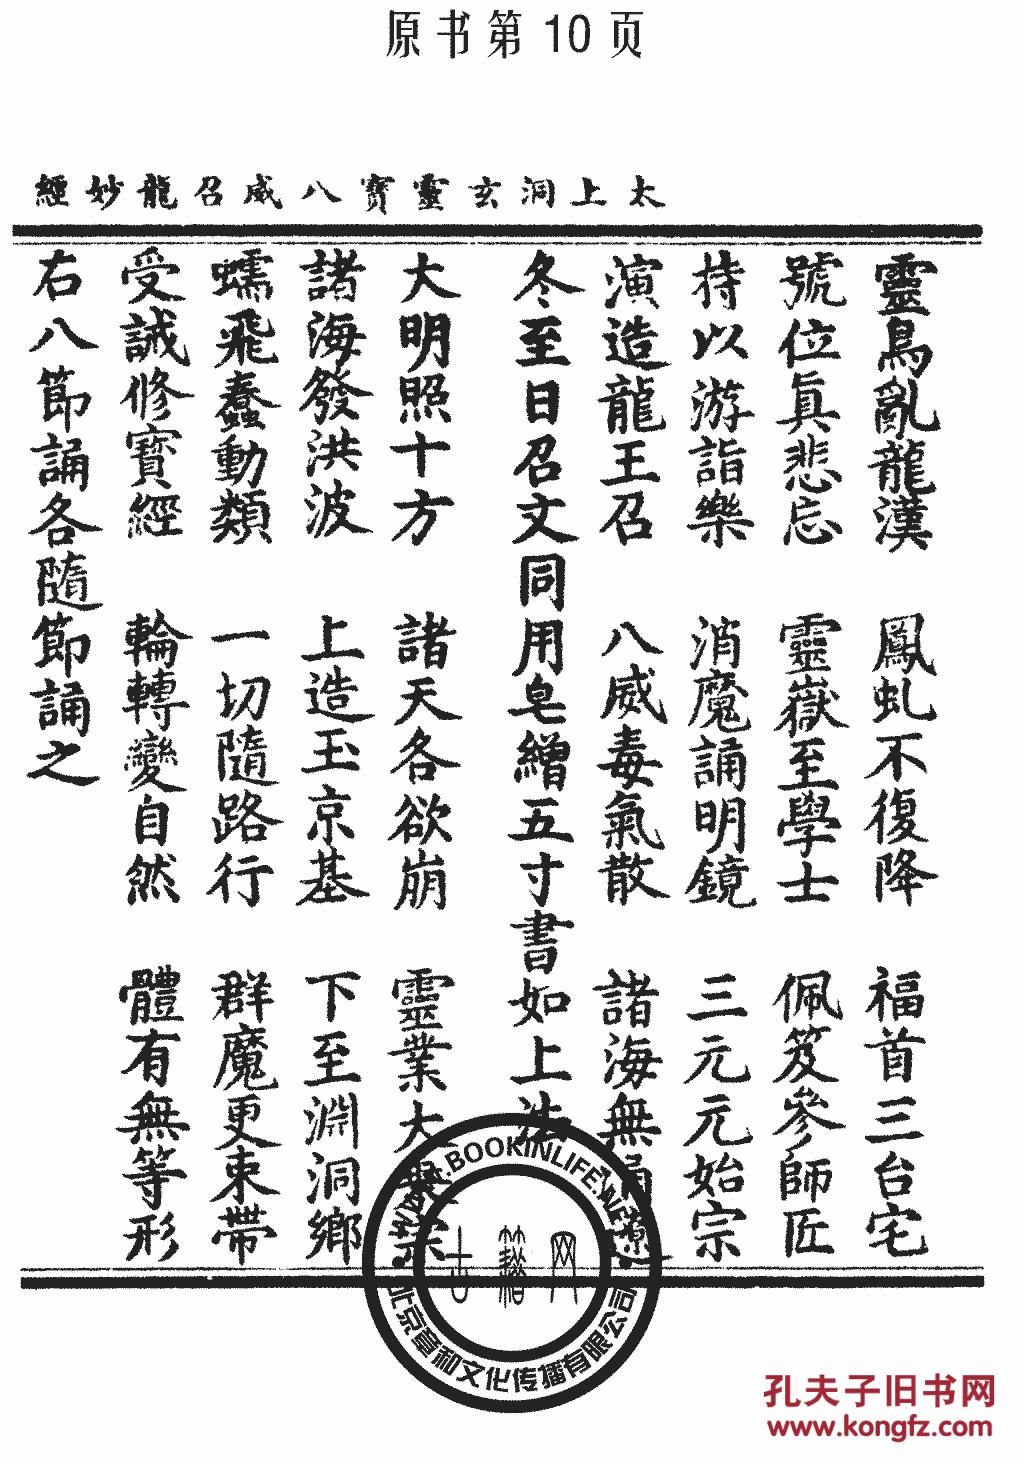 原书第10页
太上洞玄靈寶八威召龍妙經
靈鳥亂龍漢 鳳虬不復降 福首三台宅
號位真悲忘 靈嶽至學士 佩笈參師匠
持以游詣樂 消魔誦明鏡 三元元始宗
演造龍王召 八威毒氣散 諸海無
冬至日召文同用皂繒五寸書如上法
大明照十方 諸天各欲崩 靈業大
諸海發洪波 上造玉京基 下至淵洞鄉
蠕飛蠢動類 一切隨路行 群魔更束帶
受誡修寶經 輪轉變自然 體有無等形
右八節誦各隨節誦之
WWW.BOOKINLIFE.NET
北京章和文化传播有限公司
孔夫子旧书网
www.kongfz.com